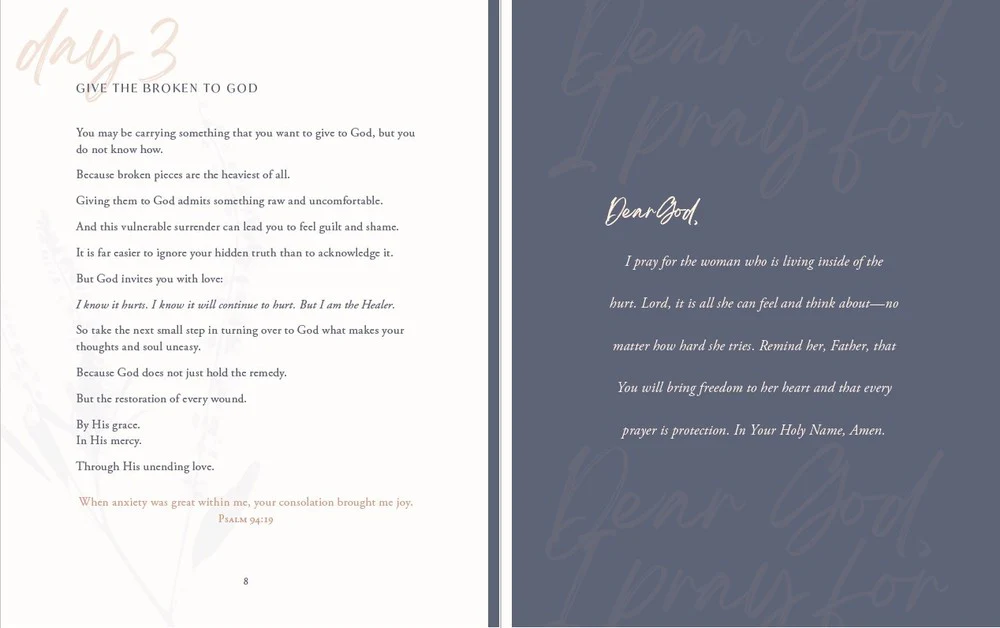 day 3
GIVE THE BROKEN TO GOD
You may be carrying something that you want to give to God, but you
do not know how.
Because broken pieces are the heaviest of all.
Giving them to God admits something raw and uncomfortable.
And this vulnerable surrender can lead you to feel guilt and shame.
It is far easier to ignore your hidden truth than to acknowledge it.
But God invites you with love:
I know it hurts. I know it will continue to hurt. But I am the Healer.
So take the next small step in turning over to God what makes your
thoughts and soul uneasy.
Because God does not just hold the remedy.
But the restoration of every wound.
By His grace.
In His mercy.
Through His unending love.
When anxiety was great within me, your consolation brought me joy.
Psalm 94:19
8
Dear God,
I pray for
Dear God,
I pray for the woman who is living inside of the
hurt. Lord, it is all she can feel and think about—no
matter how hard she tries. Remind her, Father, that
You will bring freedom to her heart and that every
prayer is protection. In Your Holy Name, Amen.
Dear God,
I pray for